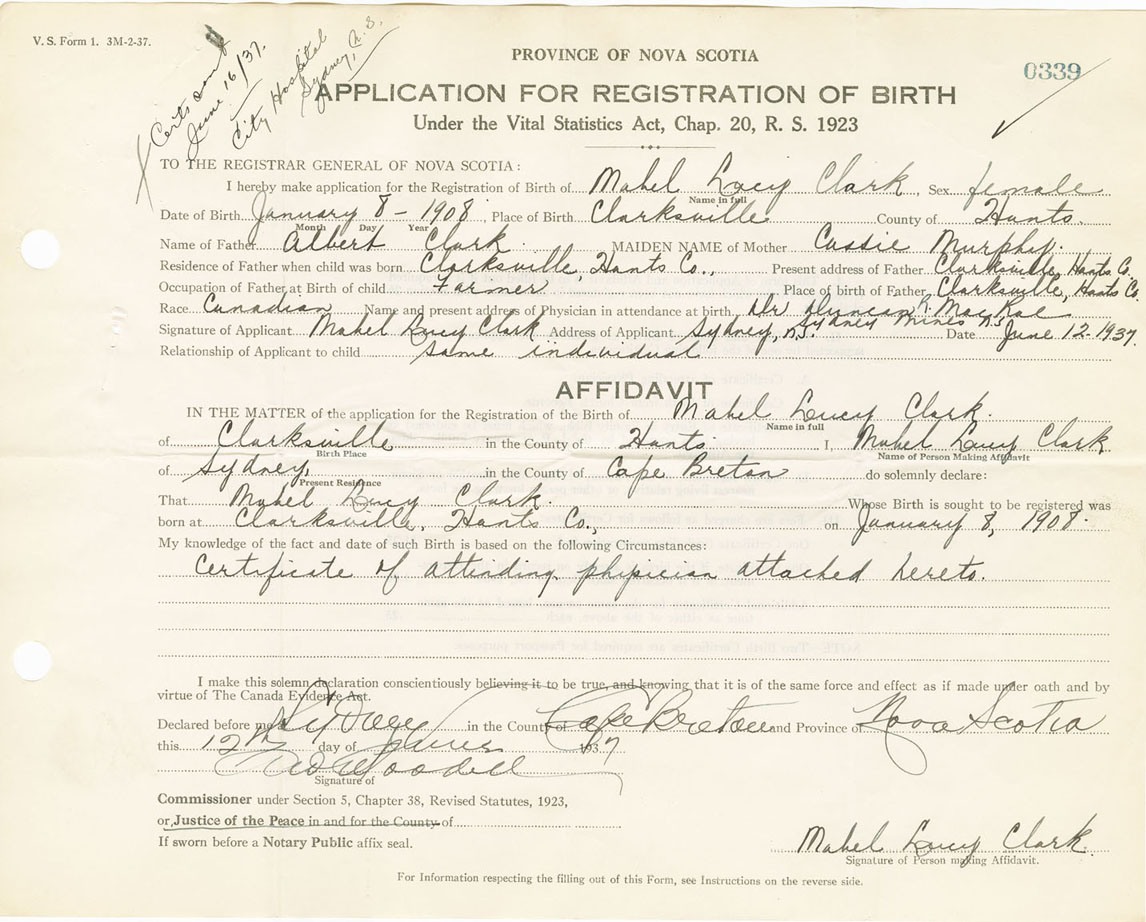 V. S. Form 1. 3M-2-37.
Certs sent
June 16/37.
City Hospital
Sydney, N. S.
PROVINCE OF NOVA SCOTIA
0339
APPLICATION FOR REGISTRATION OF BIRTH
Under the Vital Statistics Act, Chap. 20, R. S. 1923
TO THE REGISTRAR GENERAL OF NOVA SCOTIA:
I hereby make application for the Registration of Birth of Mabel Lucy Clark, Sex female
Name in full
Date of Birth January 8 - 1908, Place of Birth Clarksville County of Hants.
Month Day Year
Name of Father Albert Clark. MAIDEN NAME of Mother Cassie Murphy.
Residence of Father when child was born Clarksville, Hants Co., Present address of Father Clarksville, Hants Co.
Occupation of Father at Birth of child Farmer Place of birth of Father Clarksville, Hants Co
Race Canadian Name and present address of Physician in attendance at birth Dr Duncan K. MacRae
Sydney Mines N.S.
Signature of Applicant Mabel Lucy Clark Address of Applicant Sydney, N.S. Date June 12-1937.
Relationship of Applicant to child same individual
AFFIDAVIT
IN THE MATTER of the application for the Registration of the Birth of Mabel Lucy Clark.
Name in full
of Clarksville in the County of Hants. I, Mabel Lucy Clark
Birth Place Name of Person Making Affidavit
of Sydney, in the County of Cape Breton do solemnly declare:
Present Residence
That Mabel Lucy Clark. Whose Birth is sought to be registered was
born at Clarksville, Hants Co., on January 8, 1908.
My knowledge of the fact and date of such Birth is based on the following Circumstances:
Certificate of attending physician attached hereto.
I make this solemn declaration conscientiously believing it to be true, and knowing that it is of the same force and effect as if made under oath and by
virtue of The Canada Evidence Act.
Declared before me Sydney in the County of Cape Breton and Province of Nova Scotia
this 12th day of June 1937
Signature of
Commissioner under Section 5, Chapter 38, Revised Statutes, 1923,
or Justice of the Peace in and for the County of
If sworn before a Notary Public affix seal.
Mabel Lucy Clark.
Signature of Person making Affidavit.
For Information respecting the filling out of this Form, see Instructions on the reverse side.